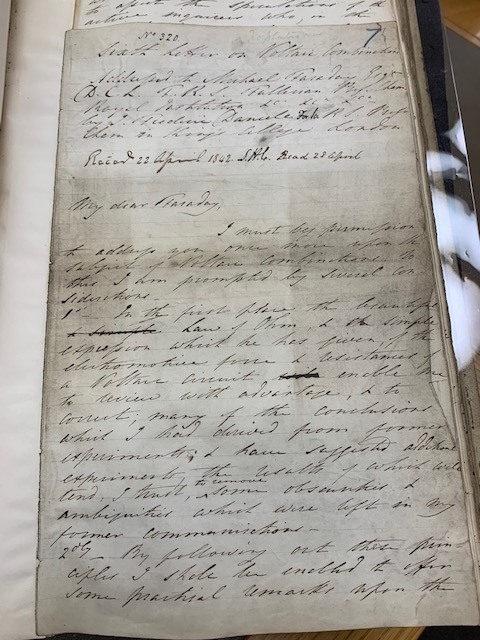 to assist the speculations of the
active inquirers who, in the
No 320.
7
Sixth Letter on Voltaic Combinations
Addressed to Michael Faraday Esqre
D.C.L. F.R.S. Fullerian Prof. Chem
Royal Institution &c &c &c
by J. Frederic Daniell For. Sec. R.S. Prof.
Chem in King's College London
Recevd 22 April 1842. S.H.C. Read 28 April
My dear Faraday,
I must beg permission
to address you once more upon the
subject of Voltaic Combinations to
this I am prompted by several con
siderations.
1st In the first place the beautiful
Law of Ohm, & the simple
expression which he has given, of the
electromotive force & resistances of
a Voltaic circuit enable me
to review with advantage, & to
correct, many of the conclusions
which I had derived from former
experiments; & have suggested additional
experiments, the results of which will
tend, I trust, to remove some obscurities &
ambiguities which were left in my
former communications—
2dly By following out these prin-
ciples I shall be enabled to offer
some practical remarks upon the